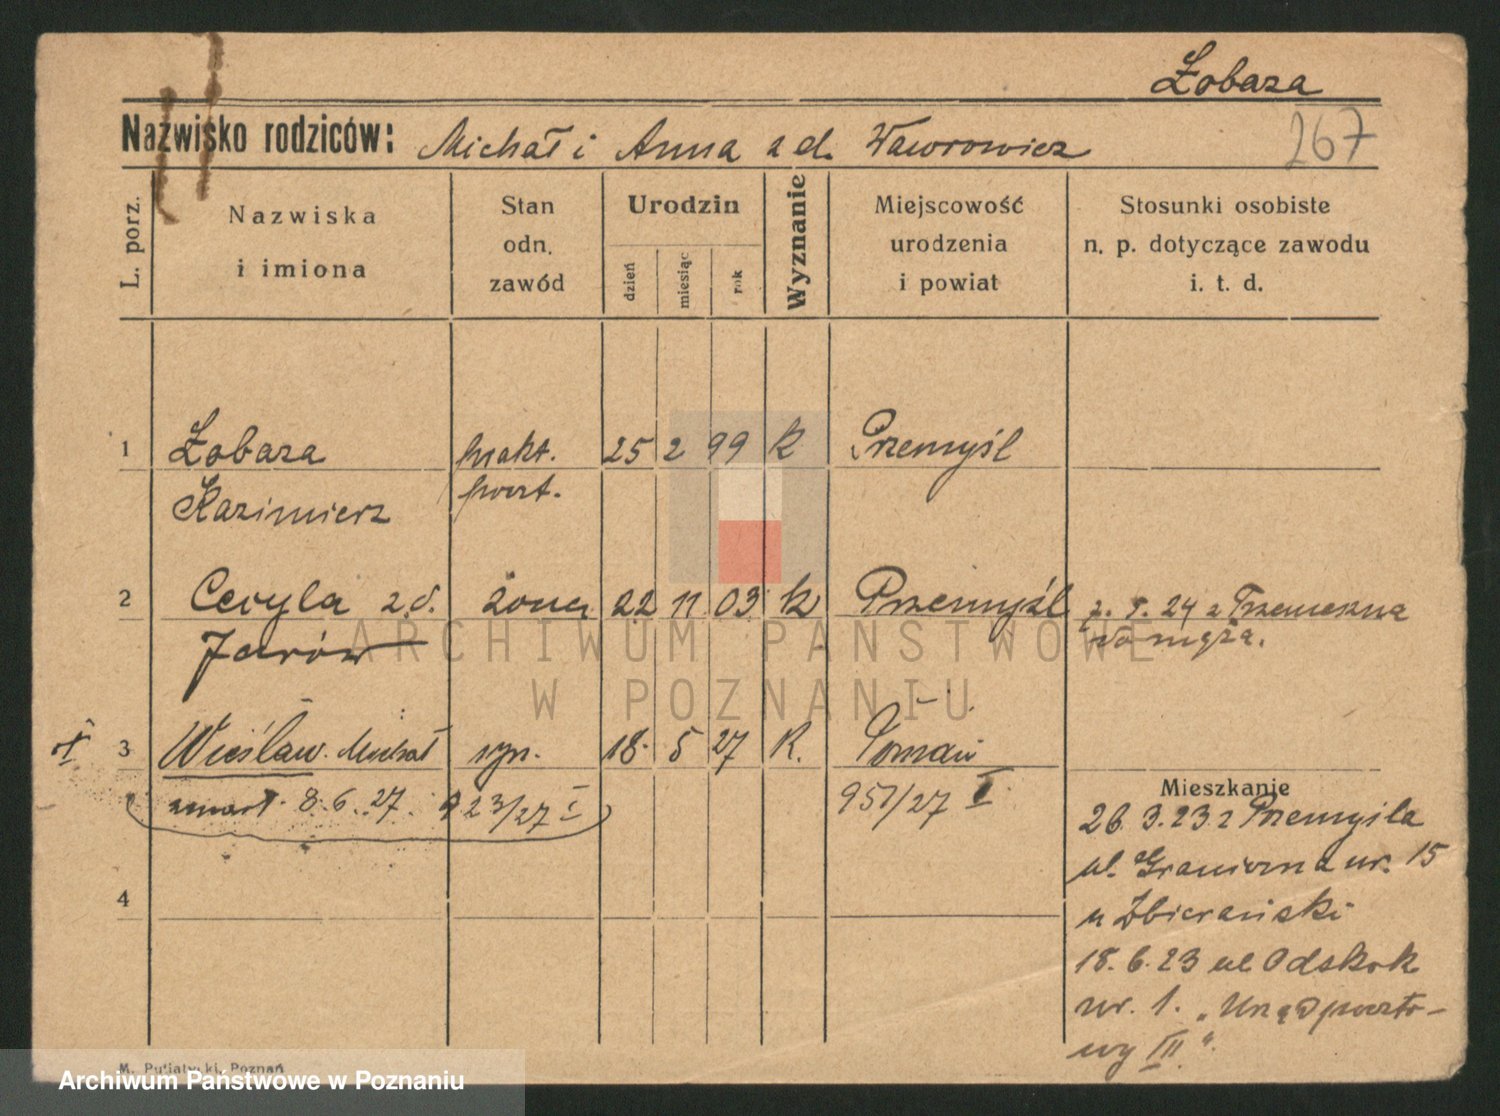 Łobaza
Nazwisko rodziców: Michał i Anna z d. Wawrowicz
267
L. porz.
Nazwiska
i imiona
Stan
odn.
zawód
Urodzin
dzień
miesiąc
rok
Wyznanie
Miejscowość
urodzenia
i powiat
Stosunki osobiste
n. p. dotyczące zawodu
i. t. d.
1 Łobaza prakt. 25 2 99 k Przemyśl
Kazimierz poczt.
2 Cecyla z d. żona 22 11 03 k Przemyśl 24 z Trzemeszna
Jarów do męża.
3 Wiesław Michał syn. 18. 5 27 k. Poznań
zmarł. 8.6.27. 923/27 I 951/27 I
Mieszkanie
26.3.23 z Przemyśla
ul. Graniczna nr. 15
u Zbierański
18.6.23 ul Odskok
nr. 1. „Urząd poczto-
wy III".
4
M. Putiatycki, Poznań
ARCHIWUM PAŃSTWOWE
W POZNANIU
Archiwum Państwowe w Poznaniu